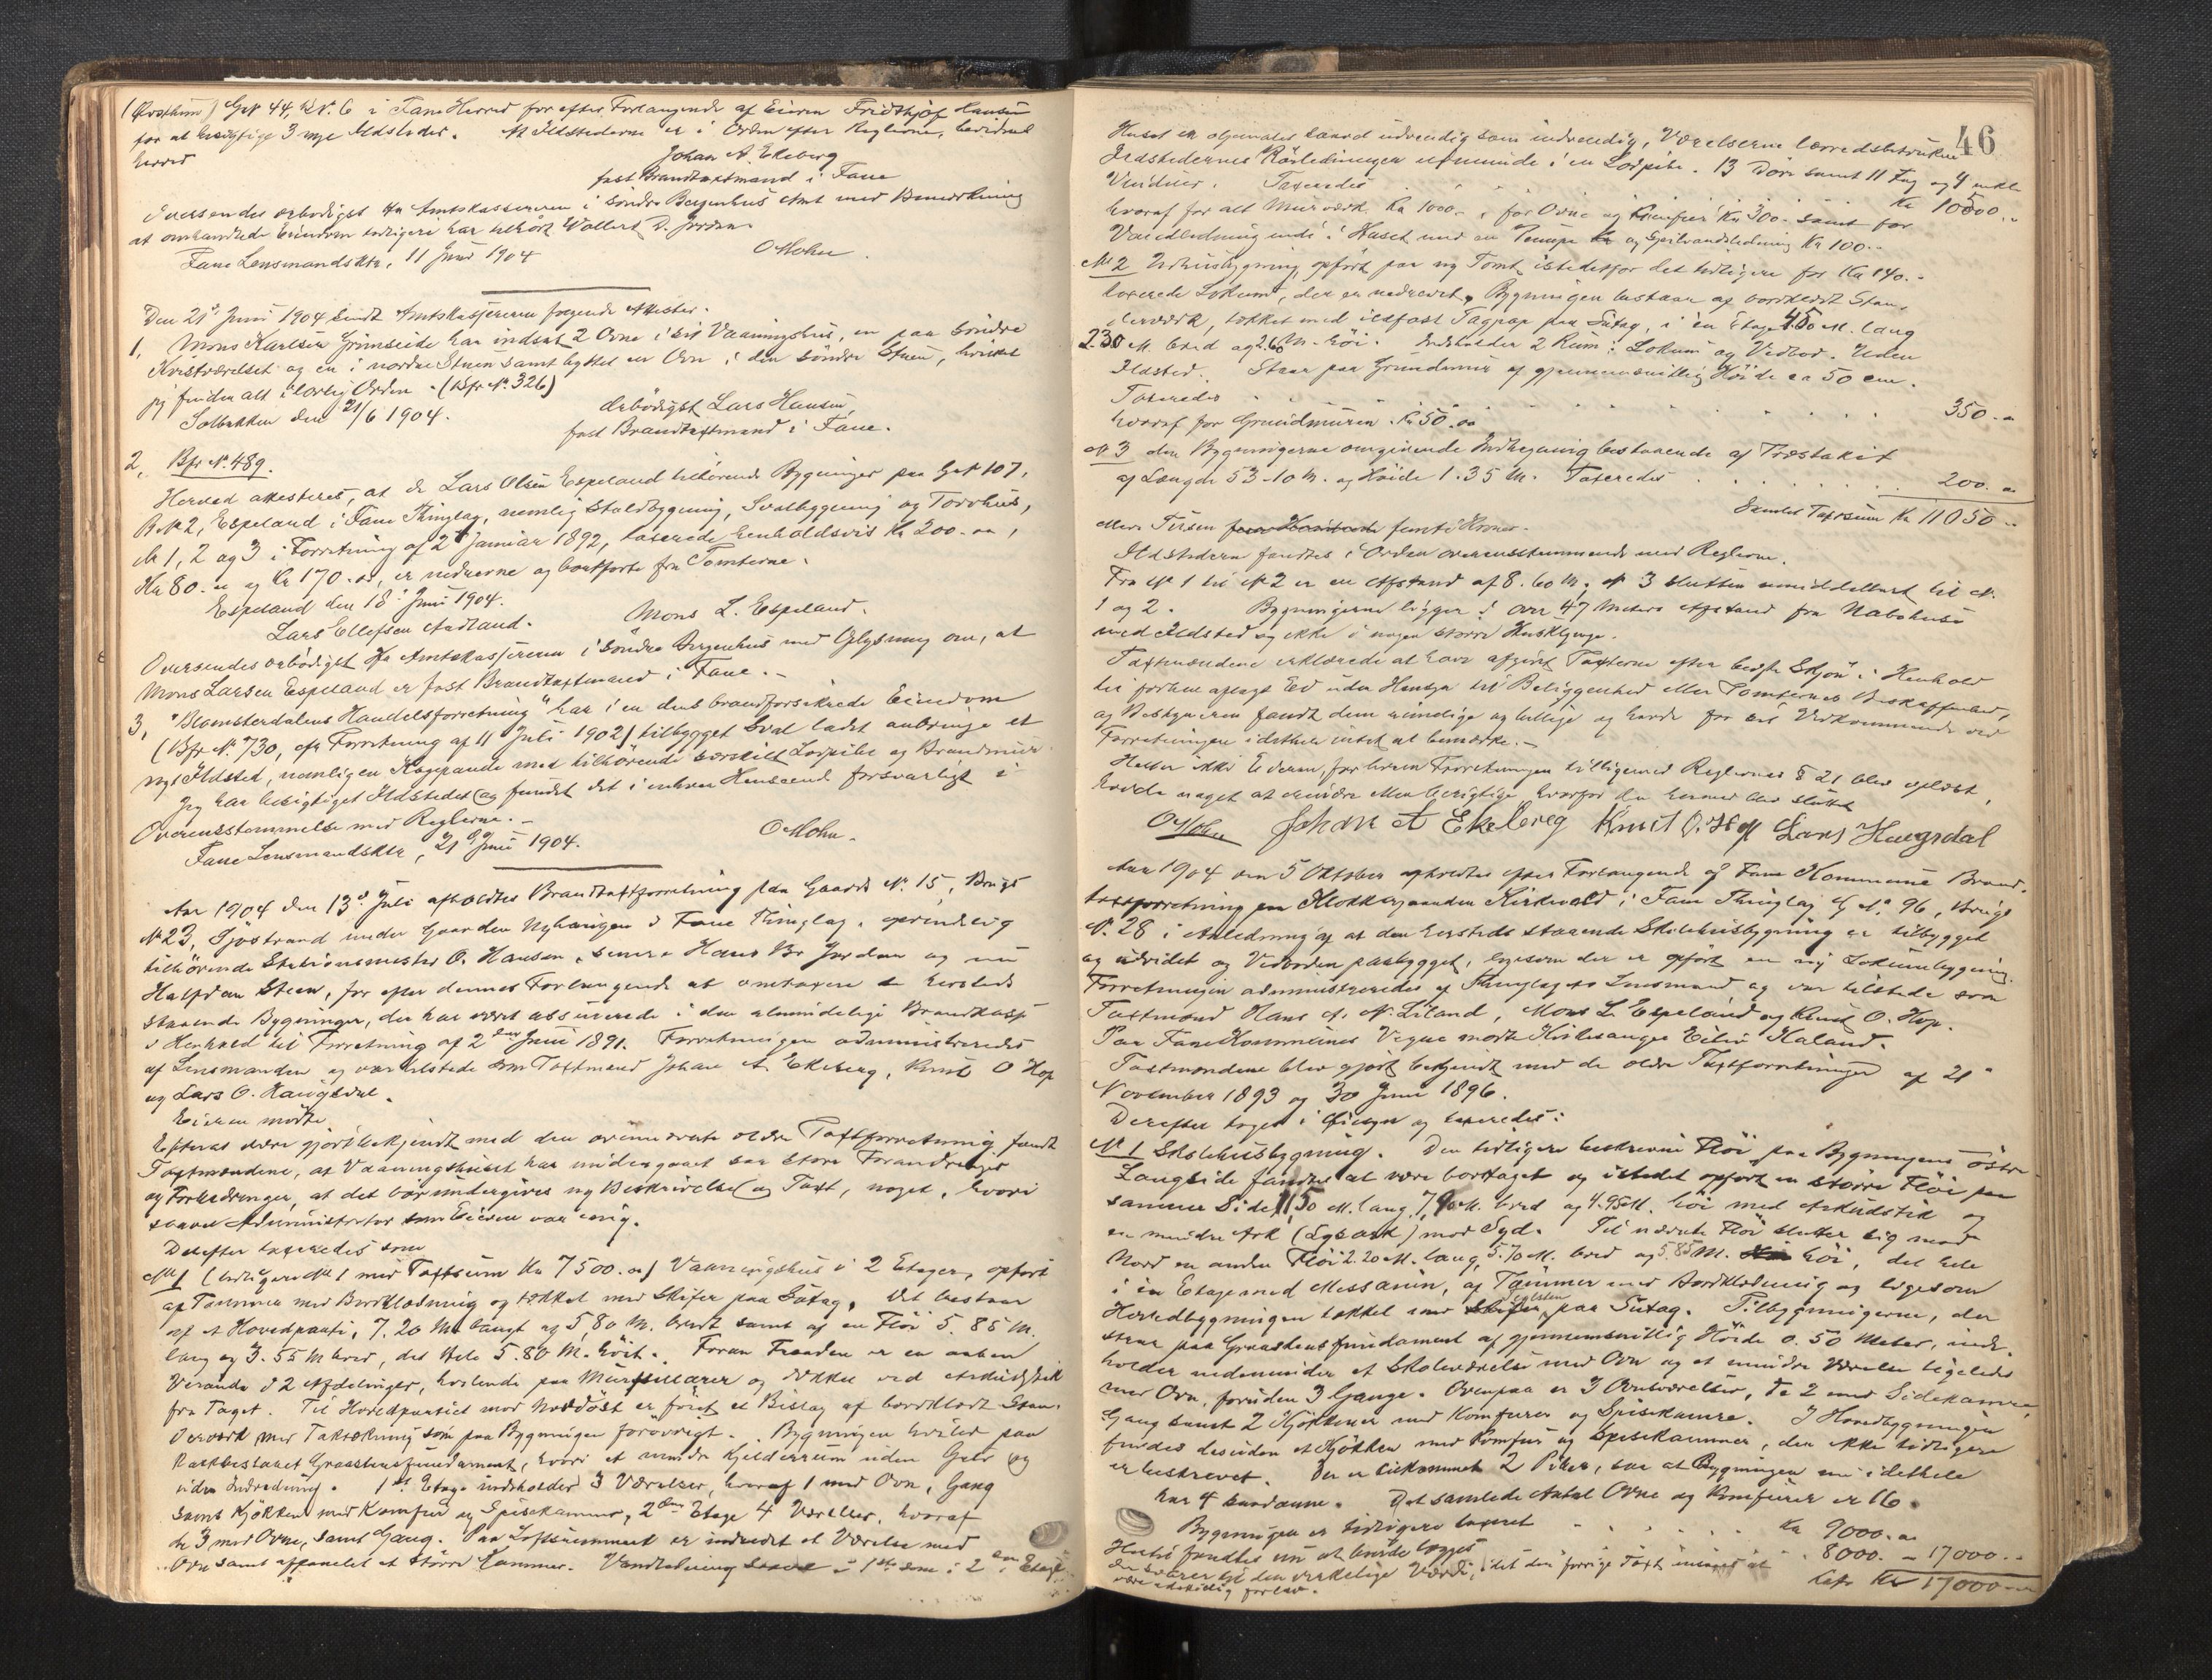 (Øvsthun) GNo 44, BNo. 6 i Fane Herred for efter Forlangende af Eieren Fridthjof Hansen
for at besigtige 3 nye Ildsteder. At Ildstederne er i Orden efter Reglerne, bevidnes
herved
Johan A. Ekeberg
fast Brandtaxtmand i Fane
Oversendes ærbødigst Hr Amtskassereren i Søndre Bergenhus Amt med Bemærkning
at omhandlede Eiendom tidligere har tilhørt Wollert D. Jordan.
Fane Lensmandsktr, 11 Juni 1904
O Mohn
Den 21de Juni 1904 sendt Amtskassereren følgende Attester.
1, Mons Karlsen Grimseide har indsat 2 Ovne i sit Vaaningshus, en paa søndre
Kvistværelset og en i nordre Stuen samt byttet en Ovn i den søndre Stuen, hvilket
jeg finder alt i lovlig Orden. (Bfr No. 326)
Solbakken den 21/6 1904.
ærbødigst Lars Hansen,
fast Brandtaxtmand i Fane.
2, Bfr No. 489.
Herved attesteres, at de Lars Olsen Espeland tilhørende Bygninger paa GNo 107,
BNo 2, Espeland i Fane Thinglag, nemlig Staldbygning, Svalbygning og Torvhus,
No 1, 2 og 3 i Forretning af 2 Januar 1892, taxerede henholdsvis Kr 200.00,
Kr 80.00 og Kr 170.00, er nedrevne og bortførte fra Tomterne.
Espeland den 18 Juni 1904.
Lars Ellefsen Aadland. Mons L. Espeland.
Oversendes ærbødigst Hr Amtskassereren i Søndre Bergenhus med Oplysning om, at
Mons Larsen Espeland er fast Brandtaxtmand i Fane. -
3, "Blomsterdalens Handelsforretning" har i en dens brandforsikrede Eiendom
(Bfr No. 730, cfr Forretning af 11 Juli 1902) tilbygget Sval ladet anbringe et
nyt Ildsted, nemlig en Kogepande med tilhørende særskilt Lovpibe og Brandmur.
Jeg har besigtiget Ildstedet og fundet det i enhver Henseende forsvarligt i
Overensstemmelse med Reglerne. -
Fane Lensmandsktr, 21 Juni 1904.
O Mohn.
Aar 1904 den 13de Juli afholdtes Brandtaxtforretning paa Gaards No. 15, Brugs
No 23, Sjøstrand under Gaarden Nyhaugen i Fane Thinglag, oprindelig
tilhørende Stationsmester O. Hansen, senere Hans Br Jordan og nu
Halfdan Steen, for efter dennes Forlangende at omtaxere de hersteds
staaende Bygninger, der har været assurerede i den almindelige Brandkasse
i Henhold til Forretning af 2den Juni 1891. Forretningen administreredes
af Lensmanden og var tilstede som Taxtmænd Johan A. Ekeberg, Knut O Hop
og Lars O. Haugsdal.
Eieren mødte.
Efterat være gjort bekjendt med den ovennævnte ældre Taxtforretning fandt
Taxtmændene, at Vaaningshuset har undergaaet saa store Forandringer
og Forbedringer, at det bør undergives ny Beskrivelse og Taxt, noget, hvori
saavel Administrator som Eieren var enig.
Derefter taxeredes som
No 1 (tidligere No 1 med Taxtsum Kr 7500.00) Vaaningshus i 2 Etager, opført
af Tømmer med Bordklædning og tækket med Skifer paa Sutag. Det bestaar
af et Hovedparti, 7.20 M langt og 5,80 M. bredt samt af en Fløi 5.85 M.
lang og 3.55 M bred, det Hele 5.80 M. høit. Foran Facaden er en aaben
Veranda i 2 Afdelinger, hvilende paa Murpillarer og dækket ved Arkudstik
fra Taget. Til Hovedpartiet mod Nordøst er føiet et Bislag af bordklædt Stan-
derværk med Taktækning som paa Bygningen forøvrigt. Bygningen hviler paa
Graastensfundament, hvori et mindre Kjelderrum uden Gulv og
uden Indredning. 1ste Etage indeholder 3 Værelser, hvoraf 1 med Ovn, Gang
samt Kjøkken med Komfur og Spisekammer, 2den Etage 4 Værelser, hvoraf
de 3 med Ovne, samt Gang. Paa Loftsrummet er indredet et Værelse med
Ovn samt afpanelet et større Kammer. Vandledning saavel i 1ste som i 2den Etage
46
Huset er oljemalet saavel udvendig som indvendig, Værelserne lærredsbetrukne
Ildstedernes Rørledninger udmunde i en Lovpibe. 13 Døre samt 11 Fag og 4 enkle
Vinduer. Taxeredes Kr 10500.-
hvoraf for alt Murværk Kr 1000.-, for Ovne og Komfur Kr 300.- samt for
Vandledning indi Huset med en Pumpe og Spilvandsledning Kr 100.-
No 2 Udhusbygning, opført paa ny Tomt istedetfor det tidligere for Kr 140.-
taxerede Lokum, der er nedrevet. Bygningen bestaar af bordklædt Stan-
derværk, tækket med ildfast Tagpap paa Sutag, i en Etage, 4.50 M. lang
2.30 M. bred og 2.60 M. høi. Indeholder 2 Rum: Lokum og Vedbod. Uden
Ildsted. Staar paa Grundmur af gjennemsnitlig Høide ca 50 cm.
Taxeredes 350.-
hvoraf for Grundmuren Kr 50.00
No 3 den Bygningerne omgivende Indhegning bestaaende af Træstakit
af Længde 53.10 M. og Høide 1.35 M. Taxeredes 200.00
Samlet Taxtsum Kr 11050.-
elleve Tusen femti Kroner.
Ildstederne fandtes i Orden overensstemmende med Reglerne.
Fra No 1 til No 2 er en Afstand af 8.60 M, No 3 slutter umiddelbart til No.
1 og 2. Bygningerne ligger i over 47 Meters Afstand fra Nabohuse
med Ildsted og ikke i nogen større Husklynge.
Taxtmændene erklærede at have afgivet Taxterne efter bedste Skjøn i Henhold
til forhen aflagt Ed uden Hensyn til Beliggenhed eller Tomternes Beskaffenhed,
og Bestyreren fandt dem rimelige og billige og havde for sit Vedkommende ved
Forretningen idethele intet at bemærke. -
Heller ikke Eieren, for hvem Forretningen tilligemed Reglernes § 21 blev oplæst,
havde noget at erindre eller berigtige hvorfor den hermed blev sluttet
O Mohn Johan A Ekeberg Knut O. Hop Lars Haugsdal
Aar 1904 den 5 Oktober afholdtes efter Forlangende af Fane Kommune Brand-
taxtforretning paa Klokkergaarden Kirkevold i Fane Thinglag G No. 96, Brugs
No. 28 i Anledning af at den hersteds staaende Skolehusbygning er tilbygget
og udvidet og Vedboden paabygget, ligesom der er opført en ny Lokumbygning.
Forretningen administreredes af Thinglagets Lensmand og var tilstede som
Taxtmænd Hans A. N. Liland, Mons L. Espeland og Knut O. Hop.
Paa Fane Kommunes Vegne mødte Kirkesanger Eiliv Haland.
Taxtmændene blev gjort bekjendt med de ældre Taxtforretninger af 21
November 1893 og 30 Juni 1896.
Derefter toges i Øiesyn og taxeredes:
No 1 Skolehusbygning. Den tidligere beskrevne Fløi paa Bygningens østre
Langside fandtes at være borttaget og istedet opført en større Fløi paa
samme Side, 11,50 M. lang, 7,90 M. bred og 4.95 M. høi med Arkudstik og
en mindre Ark (Lysark) mod Syd. Til nævnte Fløi slutter sig mod
Nord en anden Fløi 2.20 M. lang, 5.70 M. bred og 5.85 M. høi, det hele
i en Etage med Messanin, af Tømmer med Bordklædning og ligesom
Hovedbygningen tækket med Teglsten paa Sutag. Tilbygningerne, der
staar paa Graastensfundament af gjennemsnitlig Høide 0.50 Meter, inde-
holder nedenunder et Skoleværelse med Ovn og et mindre Værelse ligeledes
med Ovn, foruden 3 Gange. Ovenpaa er 3 Ovnsværelser, de 2 med Sidekamre,
Gang samt 2 Kjøkkener med Komfurer og Spisekamre. I Hovedbygningen
findes desuden et Kjøkken med Komfur og Spisekammer, der ikke tidligere
er beskrevet. Der er tilkommet 2 Piber, saa at Bygningen nu i dethele
har 4 saadanne. Det samlede Antal Ovne og Komfurer er 16.
Bygningen er tidligere taxeret Kr 9000.00
Hertil fandtes nu at burde lægges 8000.- 17000.-
der svarer til den virkelige Værdi, idet den forrige Taxt menes at
være adskillig forlav. Lats Kr 17000.-